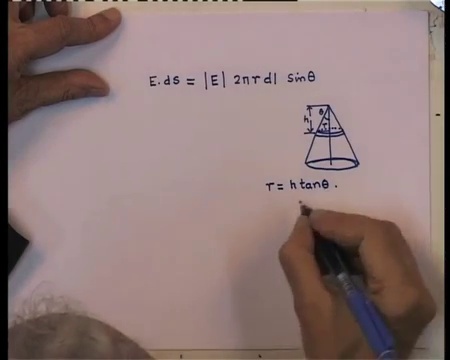 E.ds = |E| 2πr dl sinθ
θ
h
r
r = h tanθ.